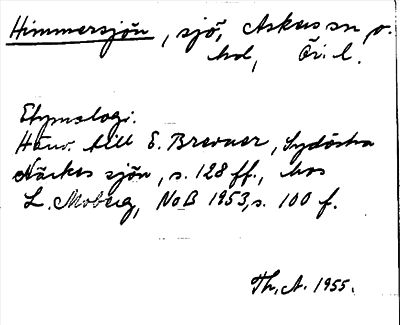 Himmersjön, sjö, Askers sn o.
hd, Ör. l.
Etymologi.
Hänv. till E. Brevner, Sydöstra
Närkes sjön, s. 128 ff., hos
L. Moberg, NoB 1953, s. 100 f.
Th. A. 1955.